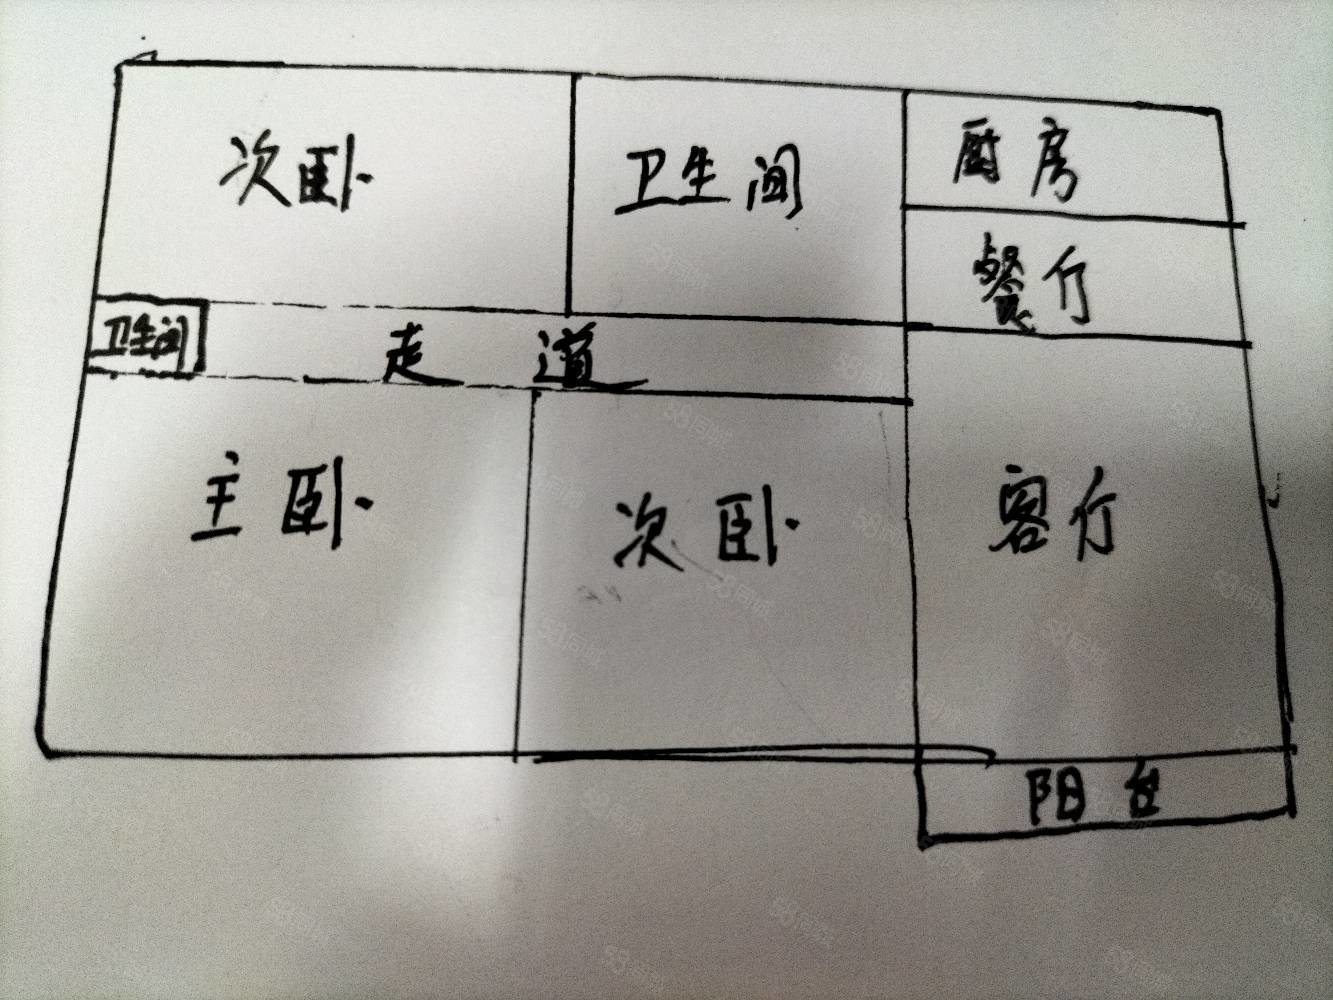 次卧
卫生间
厨房
餐厅
卫生间
走道
主卧
次卧
客厅
阳台
58同城